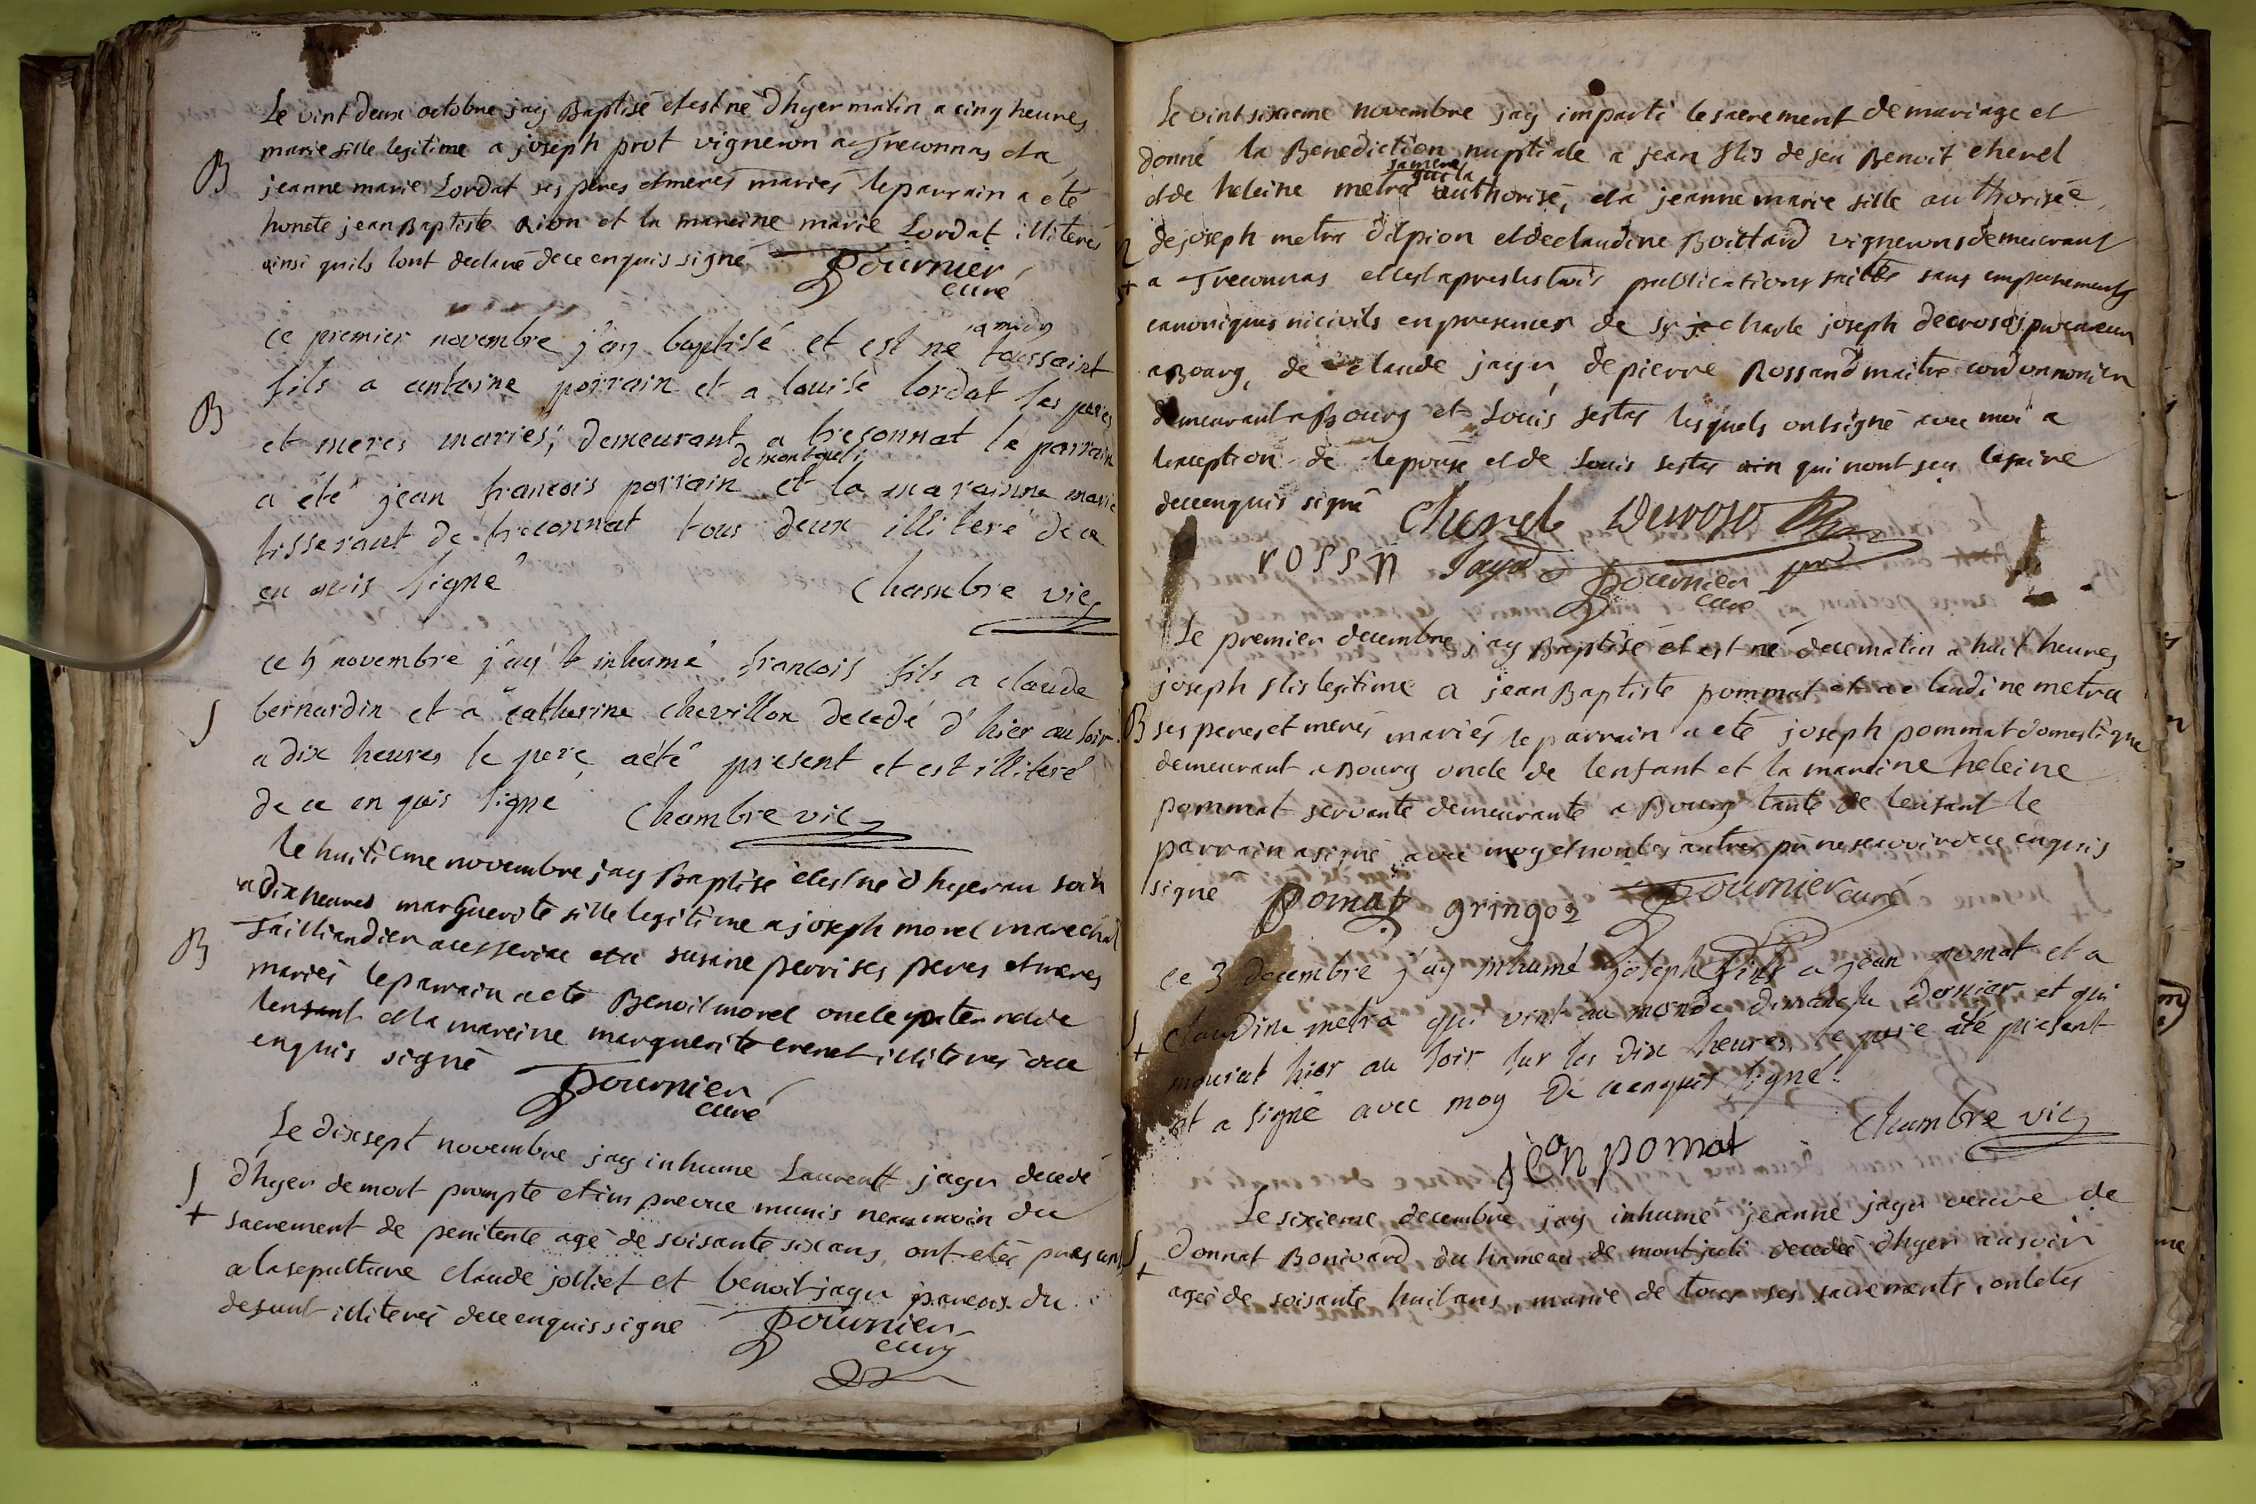 Le vint deux octobre jay Baptisé et est né d'hyer matin a cinq heures
B
marie fille legitime a joseph prot vigneron a Treconnas et a
jeanne marie Lordat ses peres et meres mariés le parrain a eté
honete jean Baptiste Rion et la mareine marie Lordat illiterés
ainsi quils lont declaré de ce enquis signé Fournier
curé
ce premier novembre j'ay baptisé et est né a midy toussaint
B
fils a antoine perrain et a louise lordat ses peres
et meres mariés, demeurant a tresonnat le parrain
a été jean francois perrain de montjuli et la maraine marie
tisserant de treconnat tous deux illiteré de ce
en quis signé Chambre vic
ce 5 novembre j'ay inhumé francois fils a claude
S
bernardin et a catherine chevillon decedé d'hier au soir
a dix heures le pere a été present et est illiteré
de ce en quis signé Chambre vic
le huitieme novembre jay Baptisé et est né d hyer au soir
a dix heures marguerite fille legitime a joseph morel marechal
B
Tailliandier a et a susane perri ses peres et meres
mariés le parrain a eté Benoit morel oncle paternel de
lenfant et la mareine marguerite crenet illiterés de ce
enquis signé Fournier
curé
Le dix sept novembre jay inhumé Laurent jayr decedé
S
+
d'hyer de mort prompte et imprevue munis neanmoin du
sacrement de penitente agé de soisante six ans, ont etés presents
a la sepulture claude jolliet et benoit jayr parens du
defunt illiterés de ce enquis signé Fournier
curé
Le vint sixieme novembre jay imparti le sacrement de mariage et
donné la Benediction nuptiale a jean fils de feu Benoit cherel
et de heleine metra sa mere qui la authorisé, et a jeanne marie fille authorisée
de joseph metra dit pion et de claudine Boittard vignerons demeurant
+
a Treconnas et cest apres les trois publications faittes sans empechements
canoniques ni civils en presences de Sr charle joseph decroso procureur
a Bourg, de claude jayr, de pierre Rossand maitre cordonnonier
demeurant a Bourg et Louis sestas lesquels ont signé avec moi a
lexception de lepouse et de Louis sestas qui nont seu le faire
de ce enquis signé Cherel Decroso
rossn Jayr Fournier
curé
Le premier decembre jay Baptisé et est né de ce matin a huit heures
joseph fils legitime a jean Baptiste pommat et a claudine metra
B
ses peres et meres mariés le parrain a eté joseph pommat domestique
demeurant a Bourg oncle de lenfant et la mareine heleine
pommat servante demeurante a Bourg tante de lenfant le
parrain a signé avec moy et non les autres pr ne scavoir de ce enquis
signé pomat gringoz Fournier curé
ce 3 decembre j'ay inhumé joseph fils a jean pomat et a
S
+
Claudine metra qui vint au monde dimanche dernier et qui
mourut hier au soir sur les dix heures le pere a été present
et a signé avec moy de ce enquis signé
jean pomat Chambre vic
Le sixieme decembre jay inhumé jeanne jayr veuve de
S
+
Donnat Bonivard du hameau de montjuli decedée d'hyer au soir
ageé de soisante huit ans, munie de tous ses sacrements, ont etés